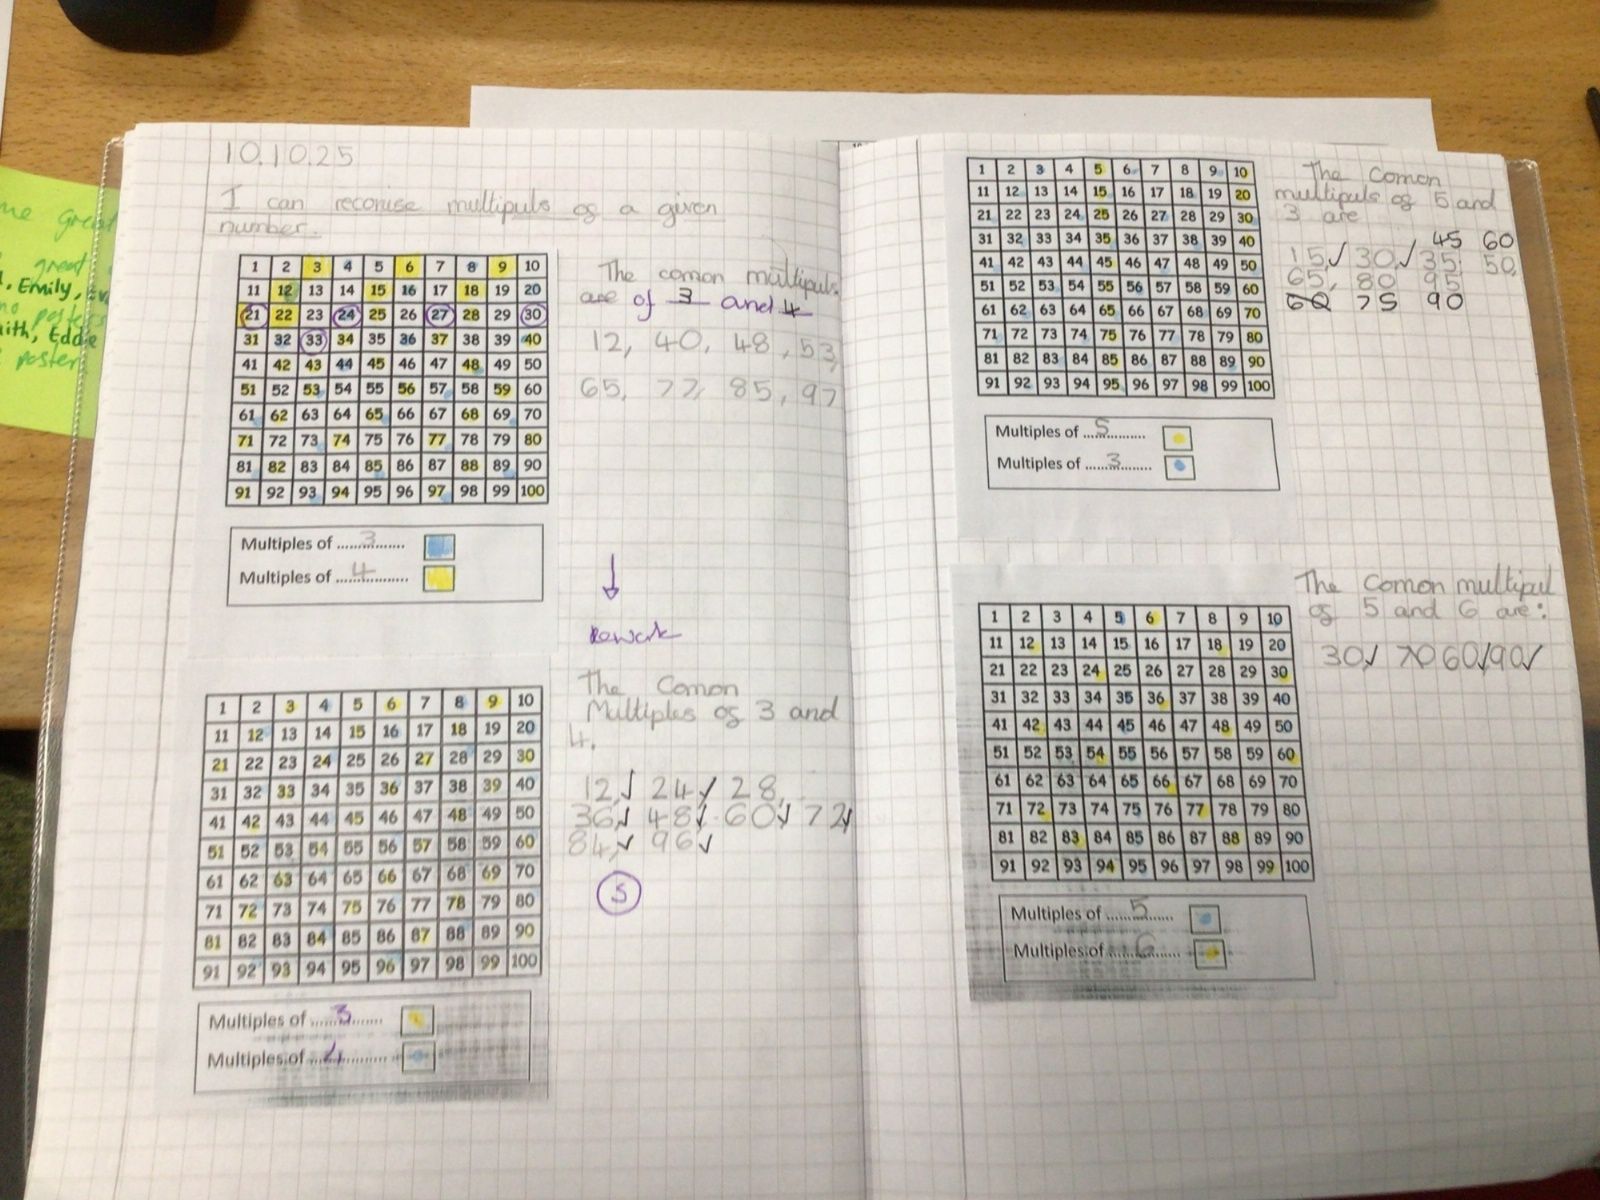 10.10.25
I can reconise multipuls of a given
number.
1 2 3 4 5 6 7 8 9 10
11 12 13 14 15 16 17 18 19 20
21 22 23 24 25 26 27 28 29 30
31 32 33 34 35 36 37 38 39 40
41 42 43 44 45 46 47 48 49 50
51 52 53 54 55 56 57 58 59 60
61 62 63 64 65 66 67 68 69 70
71 72 73 74 75 76 77 78 79 80
81 82 83 84 85 86 87 88 89 90
91 92 93 94 95 96 97 98 99 100
The comon multipuls
are of 3 and 4
12, 40, 48, 53,
65, 77, 85, 97
Multiples of ......3.......
Multiples of ......4.......
rework
1 2 3 4 5 6 7 8 9 10
11 12 13 14 15 16 17 18 19 20
21 22 23 24 25 26 27 28 29 30
31 32 33 34 35 36 37 38 39 40
41 42 43 44 45 46 47 48 49 50
51 52 53 54 55 56 57 58 59 60
61 62 63 64 65 66 67 68 69 70
71 72 73 74 75 76 77 78 79 80
81 82 83 84 85 86 87 88 89 90
91 92 93 94 95 96 97 98 99 100
The Comon
Multiples of 3 and
4.
12,✓ 24✓ 28,
36✓ 48✓ 60✓ 72✓
84✓ 96✓
S
Multiples of ......3.......
Multiples of ......4.......
1 2 3 4 5 6 7 8 9 10
11 12 13 14 15 16 17 18 19 20
21 22 23 24 25 26 27 28 29 30
31 32 33 34 35 36 37 38 39 40
41 42 43 44 45 46 47 48 49 50
51 52 53 54 55 56 57 58 59 60
61 62 63 64 65 66 67 68 69 70
71 72 73 74 75 76 77 78 79 80
81 82 83 84 85 86 87 88 89 90
91 92 93 94 95 96 97 98 99 100
The Comon
multipuls of 5 and
3 are
45 60
15,✓ 30,✓ 35, 50,
65, 80 95
60 75 90
Multiples of ......5.......
Multiples of ......3.......
1 2 3 4 5 6 7 8 9 10
11 12 13 14 15 16 17 18 19 20
21 22 23 24 25 26 27 28 29 30
31 32 33 34 35 36 37 38 39 40
41 42 43 44 45 46 47 48 49 50
51 52 53 54 55 56 57 58 59 60
61 62 63 64 65 66 67 68 69 70
71 72 73 74 75 76 77 78 79 80
81 82 83 84 85 86 87 88 89 90
91 92 93 94 95 96 97 98 99 100
The Comon multipul
of 5 and 6 are:
30✓ 70 60✓ 90✓
Multiples of ......5.......
Multiples of ......6.......
great
great
Emily,
Eddie
poster